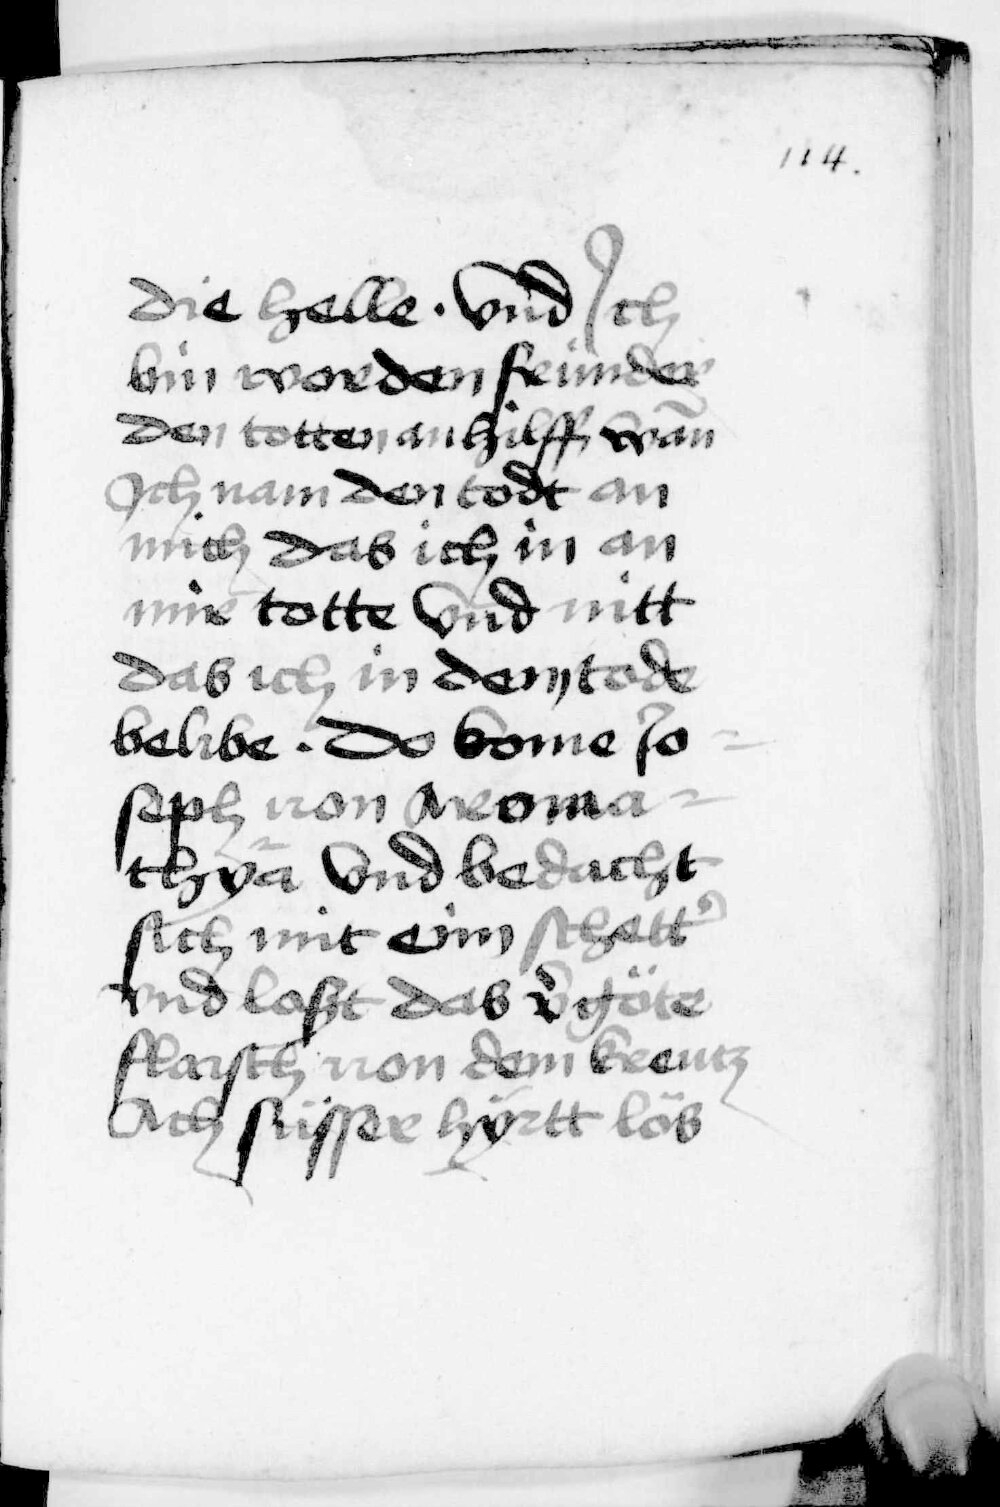 114.
die helle · vnd Ich
bin worden freünder
den totten an hilff wān
Ich nam den todt an
mich das ich in an
mir totte vnd nitt
das ich in dem tode
belibe · Do kome Jo=
seph von Aroma=
thÿa vnd bedacht
sich mit eim schett
vnd loßt das v̉göte
flaisch von dem kreutz
Ach süsser hÿrtt lös